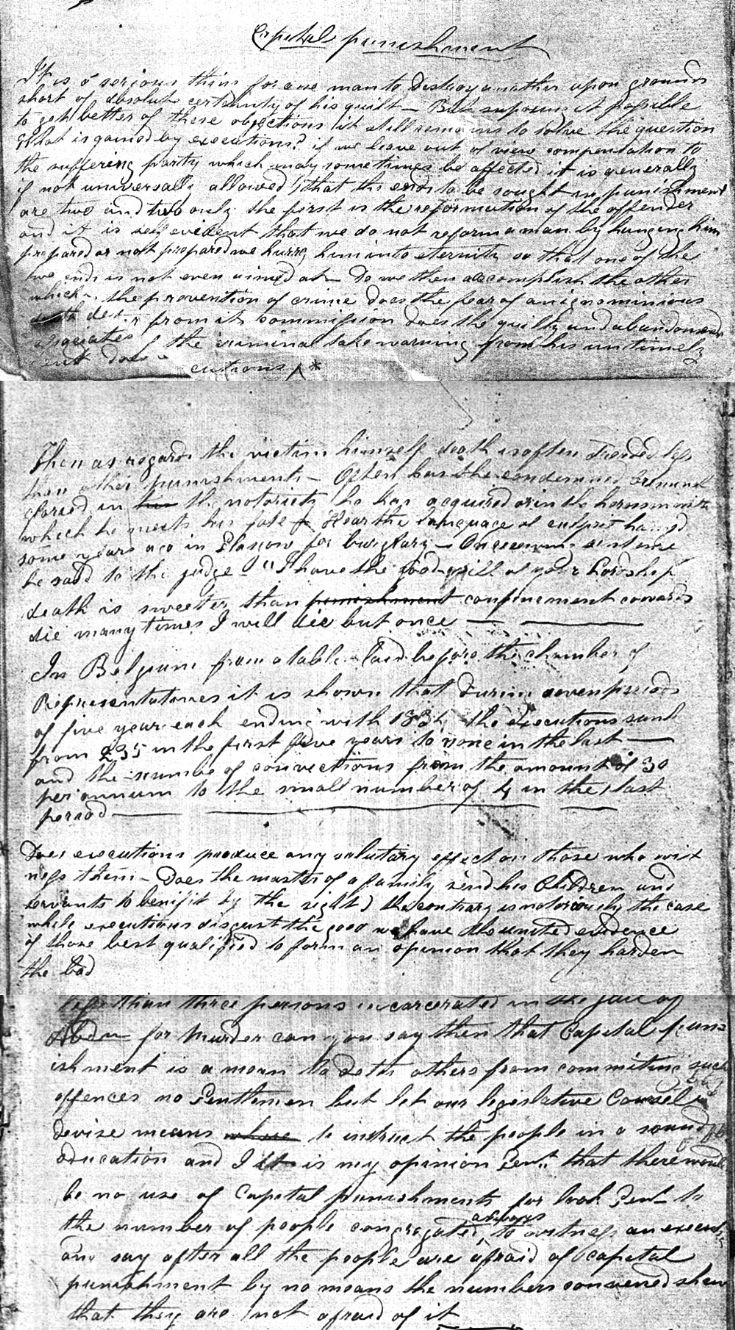 Capital punishment
It is a serious thing for one man to destroy another upon grounds
short of absolute certainty of his guilt - But suposing it possible
to get better of these objections it still remains to solve the question
what is gained by executions? if we leave out of view compensation to
the suffering party which may sometimes be affected it is generally
if not universally allowed that the ends to be sought in punishment
are two and two only the first is the reformation of the offender
and it is self evedent that we do not reform a man by hanging him
prepared or not prepared we hurry him into eternity so that one of the
two ends is not even aimed at - Do we then accomplish the other
which is the prevention of crime does the fear of an ignominious
death deter from its commission does the guilty and abandoned
associates of the criminal take warning from his untimely
cutions / *
Then as regards the victim himself death is often dreaded less
than other punishments - Often has the condemned criminal
in the notoriety he has acquired or in the
which he meets his fate Hear the language of culprit hanged
some years ago in Glasgow for burglary - On receiving sentence
he said to the judge - "I have the good will of your Lordship
death is sweeter than punishment confinement cowards
die many times I will die but once
In Belgium from a table laid before the chamber of
Representatives it is shown that during seven periods
of five years each ending with 1834 the executions sunk
from 235 in the first five years to none in the last -
and the number of convections from the amount of 30
per annum to the small number of 4 in the last
period
Does executions produce any salutary effect on those who wit
ness them - Does the master of a family send his Children and
servants to benifit by the sight) the contrary is notoriously the case
while executions disgust the good we have the united evidence
of those best qualified to form an opinion that they harden
the bad
less than three persons incarcerated in the jail of
for Murder can you say then that Capital pun
ishment is a mean to deter others from commiting such
offences no Gentlemen but let our legislative Counsel
devise means to instruct the people in a sound
education and I it is my opinion Gent. that there would
be no use of Capital punishments for look Gent. to
the number of people congregated always to witness an execut
and say after all the people are afraid of Capital
punishment by no means the numbers convened shew
that they are not afraid of it